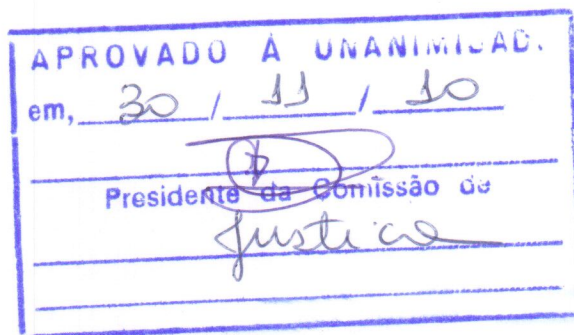 APROVADO À UNANIMIDAD.
em, 30 / 11 / 10
Presidente da Comissão de
Justiça